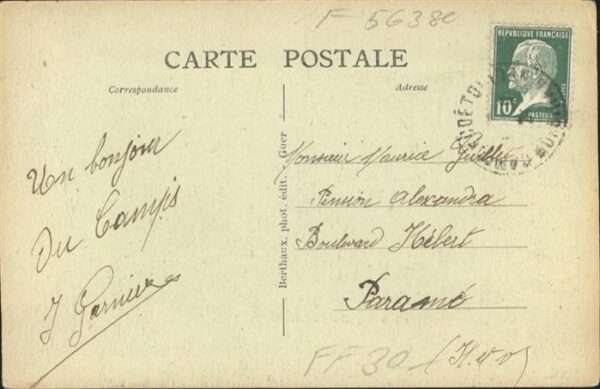 F 56380
CARTE POSTALE
Correspondance
Adresse
REPUBLIQUE FRANÇAISE
10c
PASTEUR
Un bonjour
Du Camps
J Garnier
Berthaux, phot. édit. - Guer
Monsieur Maurice
Pension Alexandra
Boulevard Hébert
Paramé
FF 30 (H. et V)